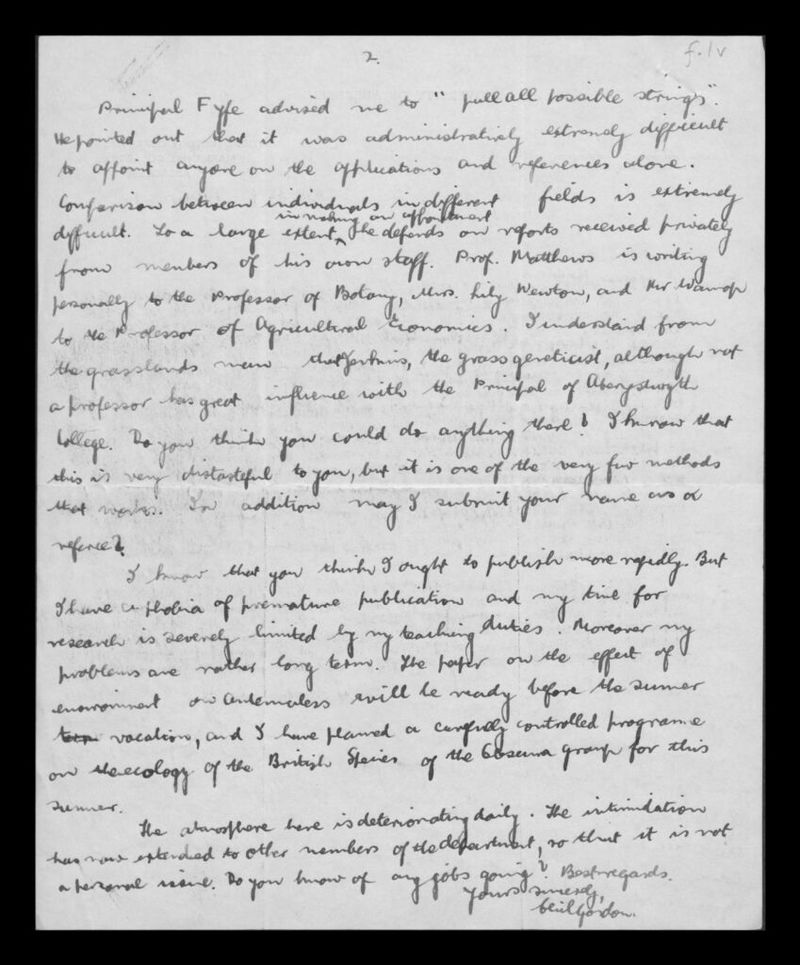 2.
f.1v
Principal Fyfe advised me to "pull all possible strings".
He pointed out that it was administratively extremely difficult
to appoint anyone on the applications and references alone.
Comparison between individuals in different fields is extremely
in making an appointment
difficult. To a large extent, he depends on reports received privately
from members of his own staff. Prof. Matthews is writing
personally to the Professor of Botany, Mrs. Lily Newton, and Mr Wannop
to the Professor of Agricultural Economics. I understand from
the grasslands man that Jenkins, the grass geneticist, although not
a professor has great influence with the Principal of Aberystwyth
College. Do you think you could do anything there? I know that
this is very distasteful to you, but it is one of the very few methods
that works. In addition may I submit your name as a
referee?
I know that you think I ought to publish more rapidly. But
I have a phobia of premature publication and my time for
research is severely limited by my teaching duties. Moreover my
problems are rather long term. The paper on the effect of
environment on antennaless will be ready before the summer
vacation, and I have planned a carefully controlled programe
on the ecology of the British Species of the Obscura group for this
summer.
The atmosphere here is deteriorating daily. The intimidation
has now extended to other members of the department, so that it is not
a personal issue. Do you know of any jobs going? Best regards.
Yours sincerely,
Cecil Gordon.